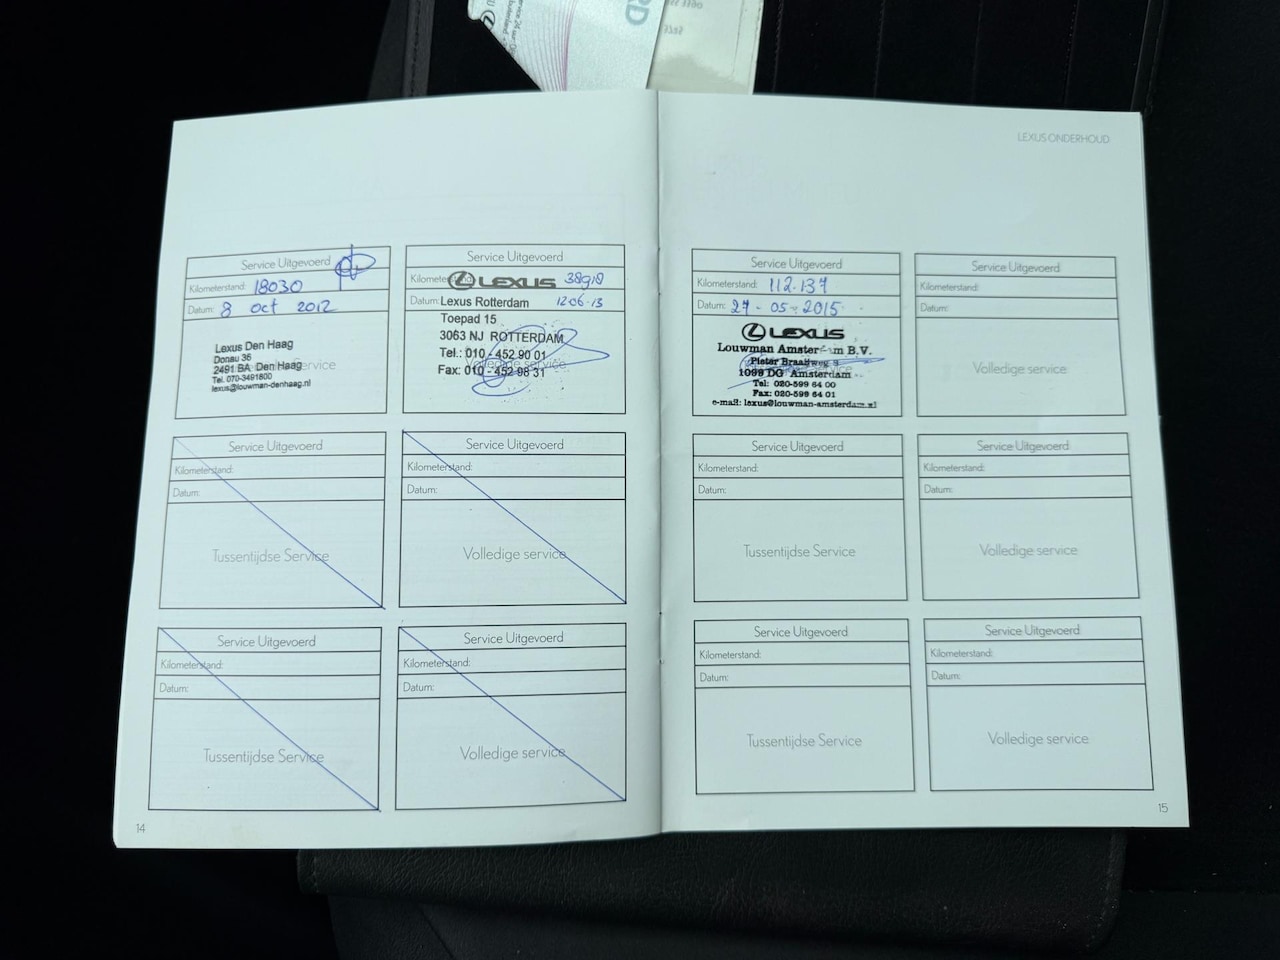 LEXUS ONDERHOUD
Service Uitgevoerd
Kilometerstand: 18030
Datum: 8 oct 2012
Lexus Den Haag
Donau 36
2491 BA Den Haag
Tel. 070-3491800
lexus@louwman-denhaag.nl
Service
Service Uitgevoerd
LEXUS
Datum: 12 06 - 13
Lexus Rotterdam
Toepad 15
3063 NJ ROTTERDAM
Tel.: 010 - 452 90 01
Volledige service
Fax: 010 - 452 98 31
Service Uitgevoerd
Kilometerstand:
Datum:
Tussentijdse Service
Service Uitgevoerd
Kilometerstand:
Datum:
Volledige service
Service Uitgevoerd
Kilometerstand:
Datum:
Tussentijdse Service
Service Uitgevoerd
Kilometerstand:
Datum:
Volledige service
14
Service Uitgevoerd
Kilometerstand: 112.137
Datum: 27 - 05 - 2015
LEXUS
Louwman Amsterdam B.V.
Pieter Braaijweg
1099 DG Amsterdam
Tel: 020-599 64 00
Fax: 020-599 64 01
e-mail: lexus@louwman-amsterdam.nl
Service Uitgevoerd
Kilometerstand:
Datum:
Volledige service
Service Uitgevoerd
Kilometerstand:
Datum:
Tussentijdse Service
Service Uitgevoerd
Kilometerstand:
Datum:
Volledige service
Service Uitgevoerd
Kilometerstand:
Datum:
Tussentijdse Service
Service Uitgevoerd
Kilometerstand:
Datum:
Volledige service
15